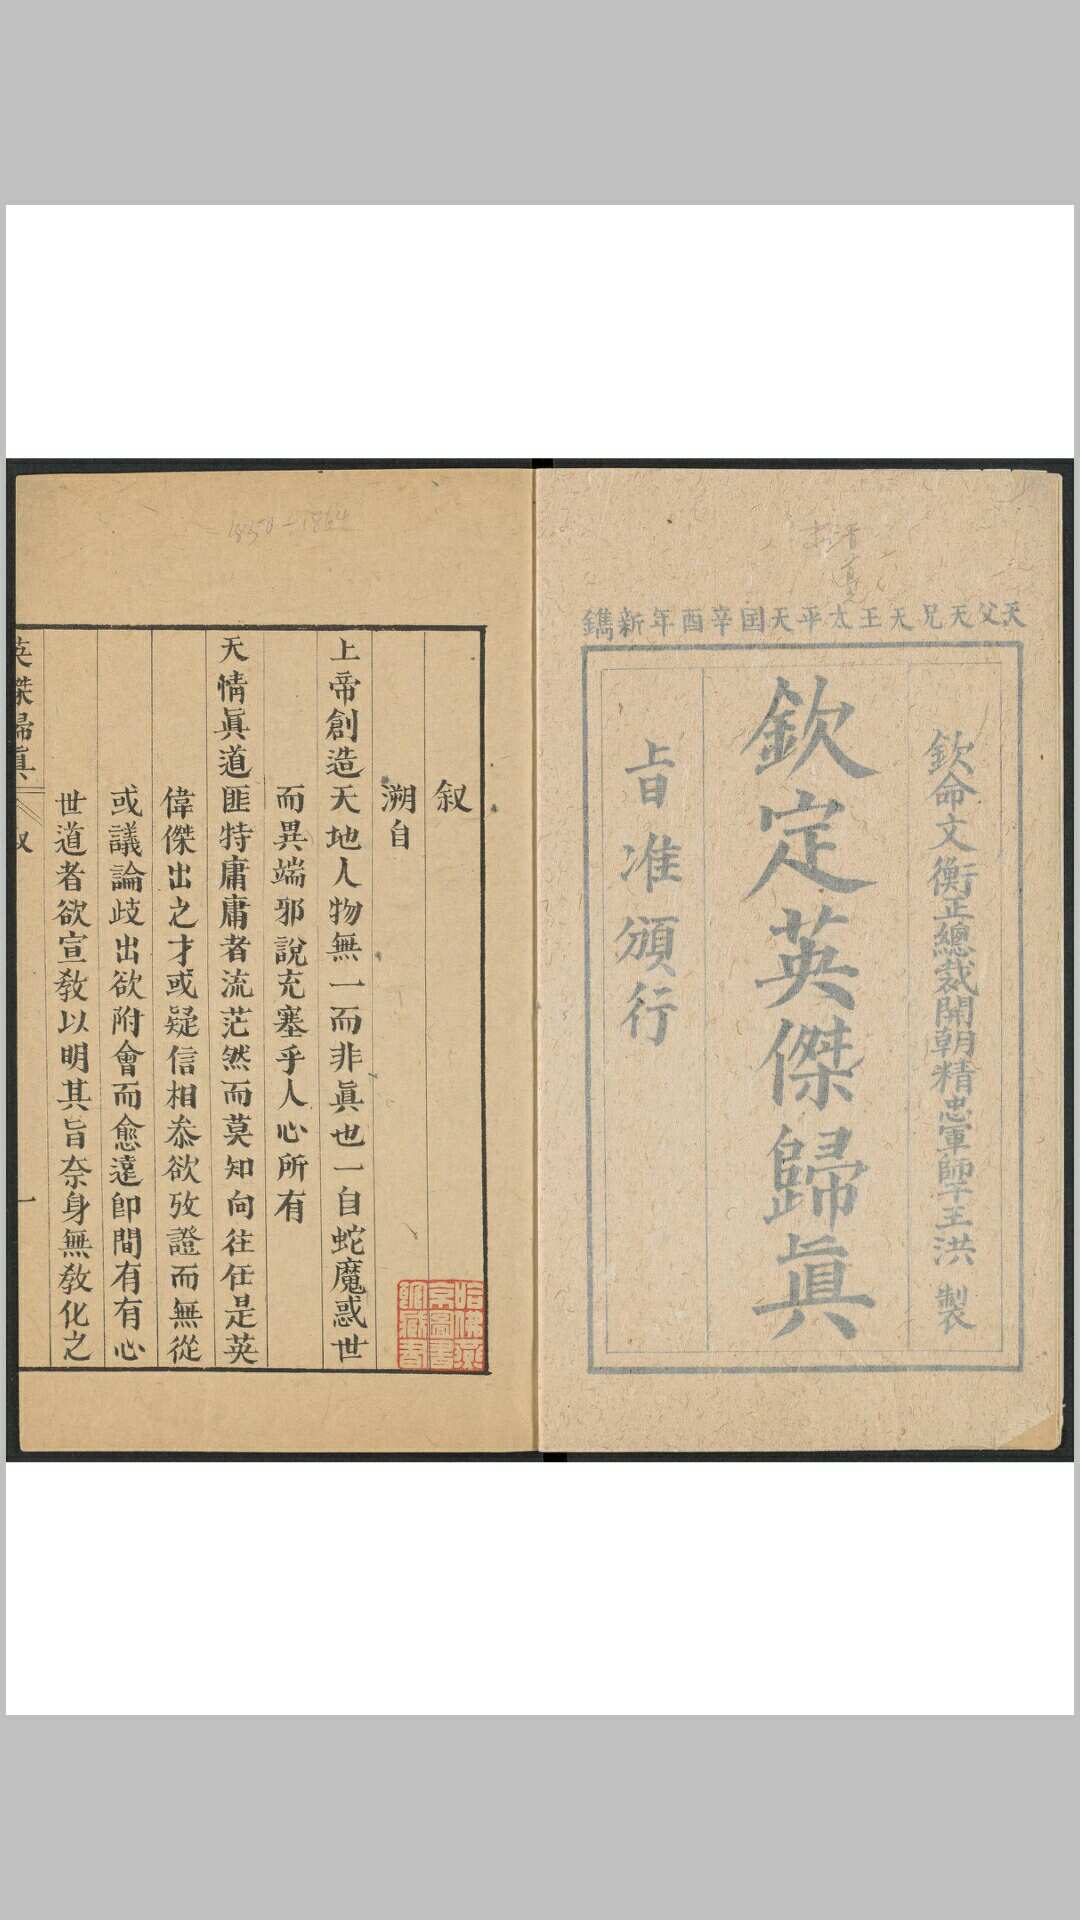 天父天兄天王太平天囯辛酉年新鐫
欽命文衡正總裁開朝精忠軍師干王洪 製
欽定英傑歸眞
旨准頒行
1850-1864
叙
溯自
上帝創造天地人物無一而非眞也一自蛇魔惑世
而異端邪說充塞乎人心所有
天情眞道匪特庸庸者流茫然而莫知向往任是英
偉傑出之才或疑信相叅欲攷證而無從
或議論歧出欲附會而愈遠卽間有有心
世道者欲宣教以明其旨奈身無教化之
英傑歸眞
叙
一
哈佛燕
京圖書
館藏書